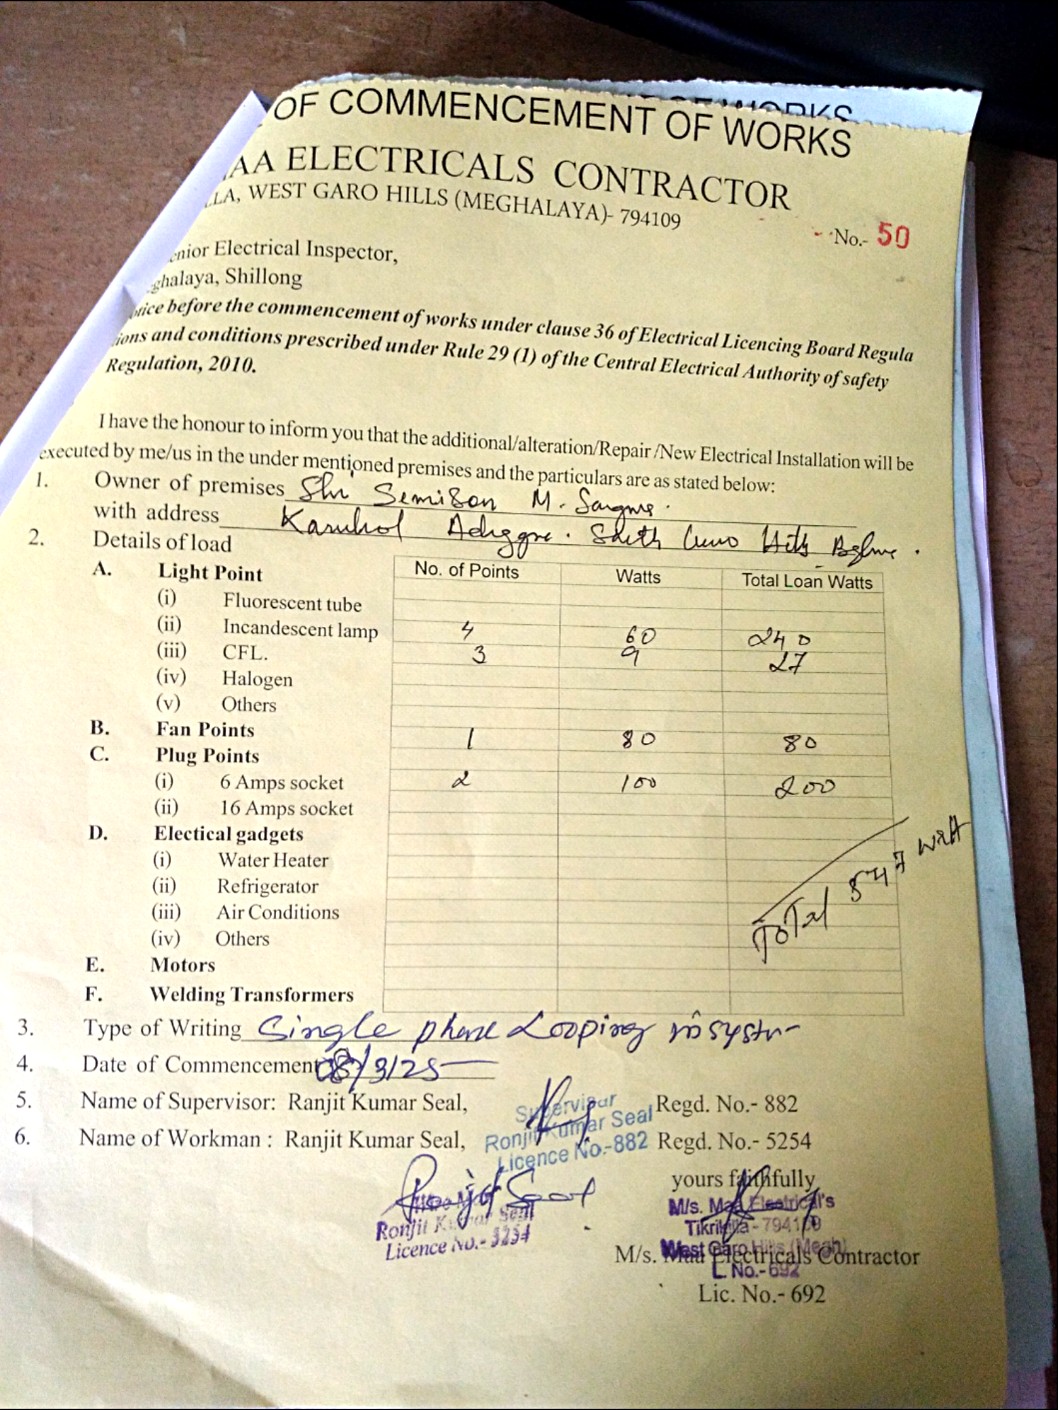 OF COMMENCEMENT OF WORKS
AA ELECTRICALS CONTRACTOR
LLA, WEST GARO HILLS (MEGHALAYA)- 794109
No.- 50
enior Electrical Inspector,
ghalaya, Shillong
otice before the commencement of works under clause 36 of Electrical Licencing Board Regula
ions and conditions prescribed under Rule 29 (1) of the Central Electrical Authority of safety
Regulation, 2010.
I have the honour to inform you that the additional/alteration/Repair /New Electrical Installation will be
executed by me/us in the under mentioned premises and the particulars are as stated below:
1. Owner of premises Shri Semison M. Sangma.
with address South Hills
2. Details of load
No. of Points Watts Total Loan Watts
A. Light Point
(i) Fluorescent tube
(ii) Incandescent lamp 4 60 240
(iii) CFL. 3 9 27
(iv) Halogen
(v) Others
B. Fan Points 1 80 80
C. Plug Points
(i) 6 Amps socket 2 100 200
(ii) 16 Amps socket
D. Electical gadgets
(i) Water Heater
(ii) Refrigerator
(iii) Air Conditions
(iv) Others
Total 547 watt
E. Motors
F. Welding Transformers
3. Type of Writing Single phase Looping
4. Date of Commencement 08/3/25
5. Name of Supervisor: Ranjit Kumar Seal, Regd. No.- 882
Supervisor
Ronjit Kumar Seal
Licence No.-882
6. Name of Workman : Ranjit Kumar Seal, Regd. No.- 5254
Ronjit Seal
Ronjit Kumar Seal
Licence No.- 5254
yours faithfully
M/s. Maa Electrical's
Tikrikilla - 794109
West Garo Hills (Megh)
L No.-692
M/s. Maa Electricals Contractor
Lic. No.- 692